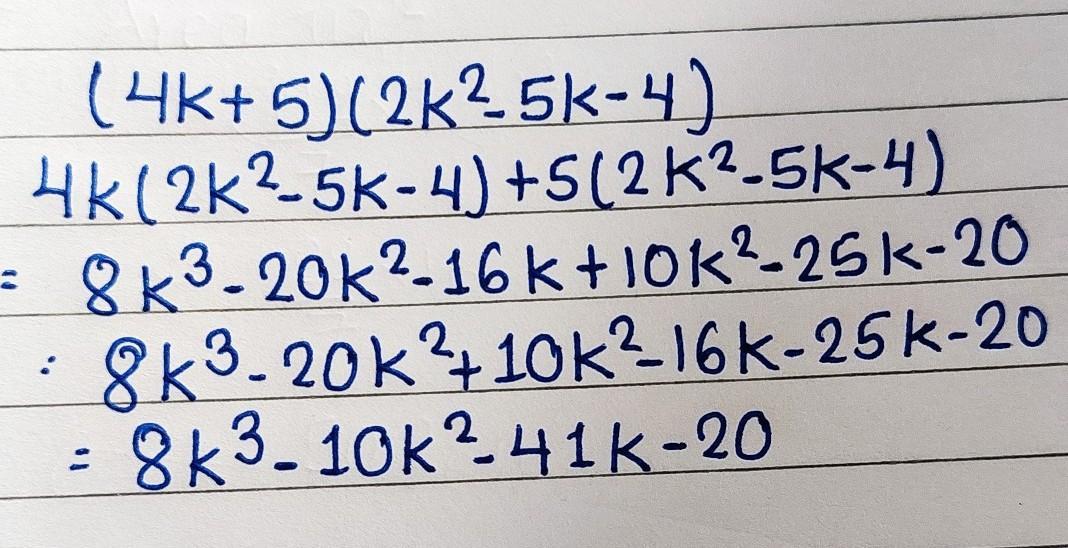 (4k+5)(2k²-5k-4)
4k(2k²-5k-4)+5(2k²-5k-4)
= 8k³-20k²-16k+10k²-25k-20
: 8k³-20k²+10k²-16k-25k-20
= 8k³-10k²-41k-20